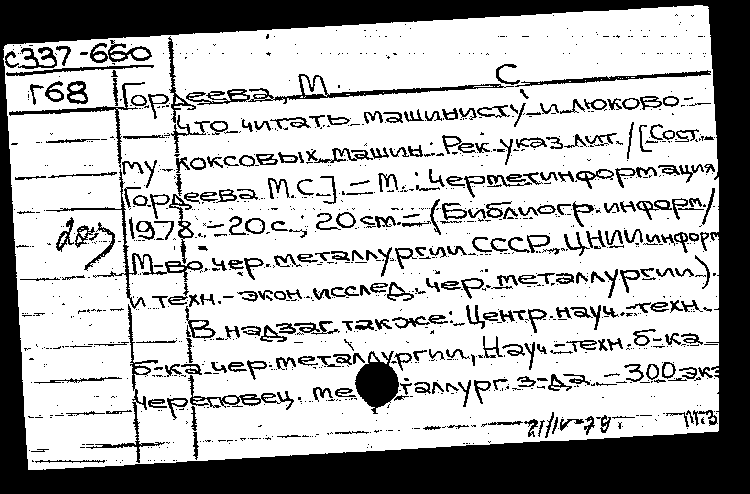 с337-660
Г68
Гордеева, М. С.
Что читать машинисту и люково-
му коксовых машин: Рек. указ. лит. / [Сост.
Гордеева М.С.]. – М.: Черметинформация,
1978. – 20 с.; 20 см. – (Библиогр. информ /
М-во чер. металлургии СССР, ЦНИИ информ
и техн.-экон. исслед. чер. металлургии).
В надзаг. также: Центр. науч.-техн.
б-ка чер. металлургии, Науч.-техн. б-ка
Череповец. металлург. з-да – 300 экз
21/IV-79.
М.З